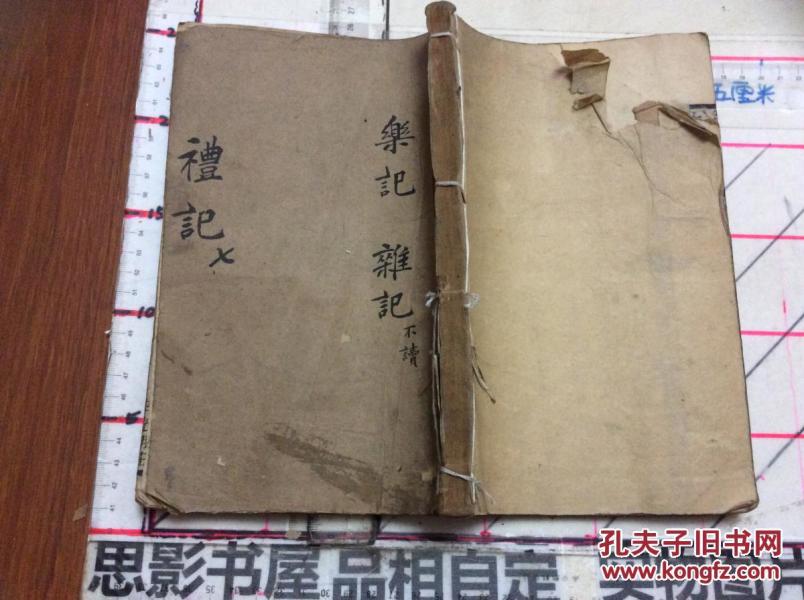 禮記
七
樂記 雜記
不讀
五厘米
15
10
5
思影书屋 品相自定 实物图片
孔夫子旧书网
www.kongfz.com